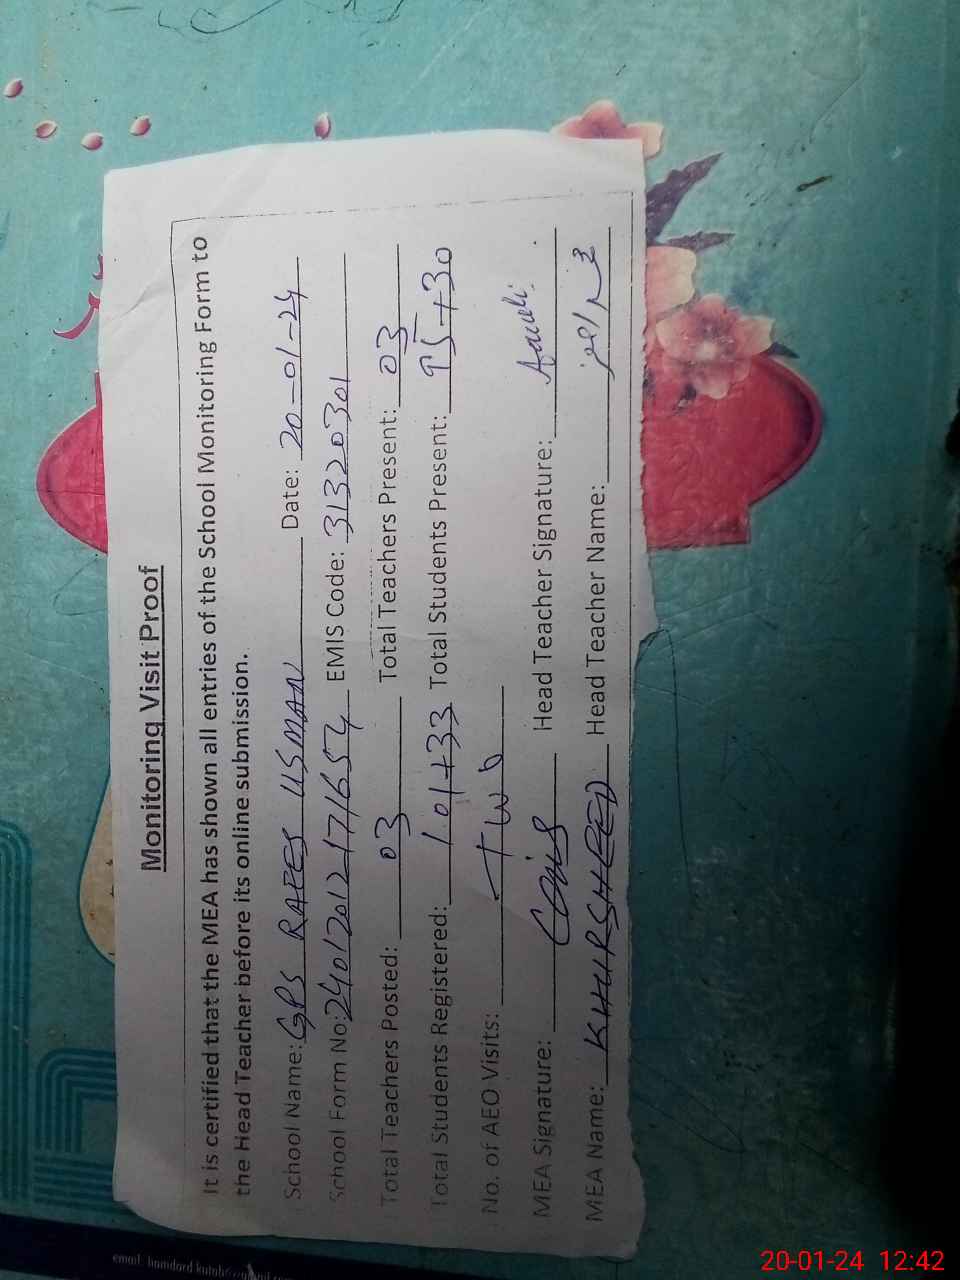 Monitoring Visit Proof
It is certified that the MEA has shown all entries of the School Monitoring Form to
the Head Teacher before its online submission.
School Name: GPS RAEES USMAN Date: 20-01-24
School Form No: 240120121717654 EMIS Code: 31320301
Total Teachers Posted: 03 Total Teachers Present: 03
Total Students Registered: 101+33 Total Students Present: 95+30
No. of AEO Visits: Two
MEA Signature: Head Teacher Signature:
MEA Name: KHURSHEED Head Teacher Name:
email: hamdard
20-01-24 12:42